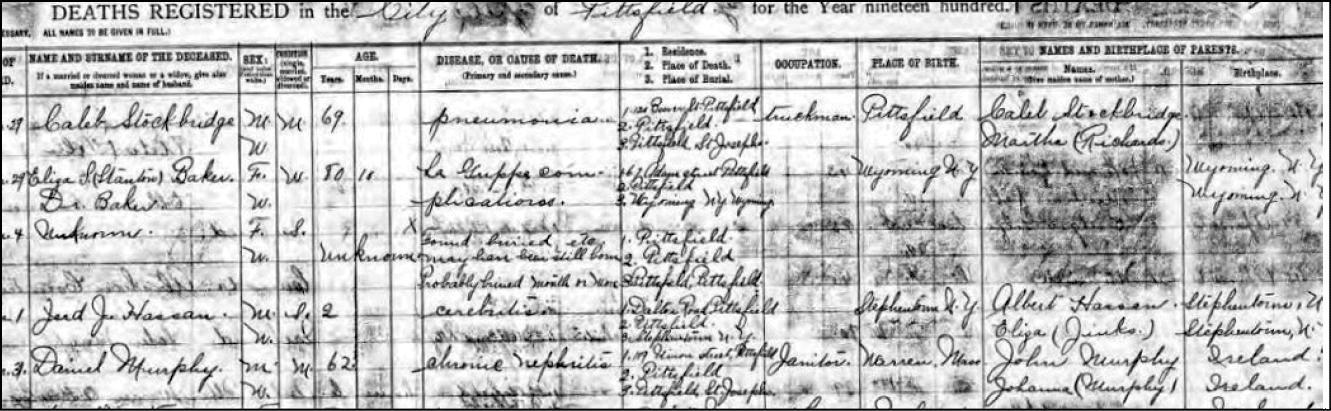 DEATHS REGISTERED in the City of Pittsfield for the Year nineteen hundred.
ALL NAMES TO BE GIVEN IN FULL.)
NAME AND SURNAME OF THE DECEASED. SEX; AGE. DISEASE, OR CAUSE OF DEATH. 1. Residence. OCCUPATION. PLACE OF BIRTH. NAMES AND BIRTHPLACE OF PARENTS.
If a married or divorced woman or a widow, give also Years. Months. Days. (Primary and secondary cause.) 2. Place of Death. Names. Birthplace.
maiden name and name of husband. 3. Place of Burial. (Give maiden name of mother.)
29 Caleb Stockbridge M. M 69. pneumonia 1. St. Pittsfield truckman Pittsfield Caleb Stockbridge
W. 2. Pittsfield. Martha (Richards.)
3. Pittsfield St Josephs.
29 Eliza S. (Stanton) Baker. F. W. 80 10 La Grippe com- Adam street Pittsfield Wyoming N. Y Wyoming. N. Y
Dr. Baker W. plications. 2. Pittsfield Wyoming. N
3. Wyoming N Y Wyoming
4 Unknown. F. S. X Found buried, etc 1. Pittsfield.
W. unknown may have been still born 2. Pittsfield
Probably buried month or more 3. Pittsfield, Pittsfield
1 Jerd J. Hassan. M. S. 2 cerebritis 1. Dalton Road Pittsfield Stephentown N. Y. Albert Hassan. Stephentown,
W. 2. Pittsfield. Eliza (Jinks.) Stephentown, N.
3. Stephentown N. Y.
3. Daniel Murphy. M. M. 62 chronic nephritis 1. Union street, Pittsfield Janitor Warren, Mass John Murphy Ireland.
W. 2. Pittsfield Johanna (Murphy) Ireland.
3. Pittsfield, St Josephs